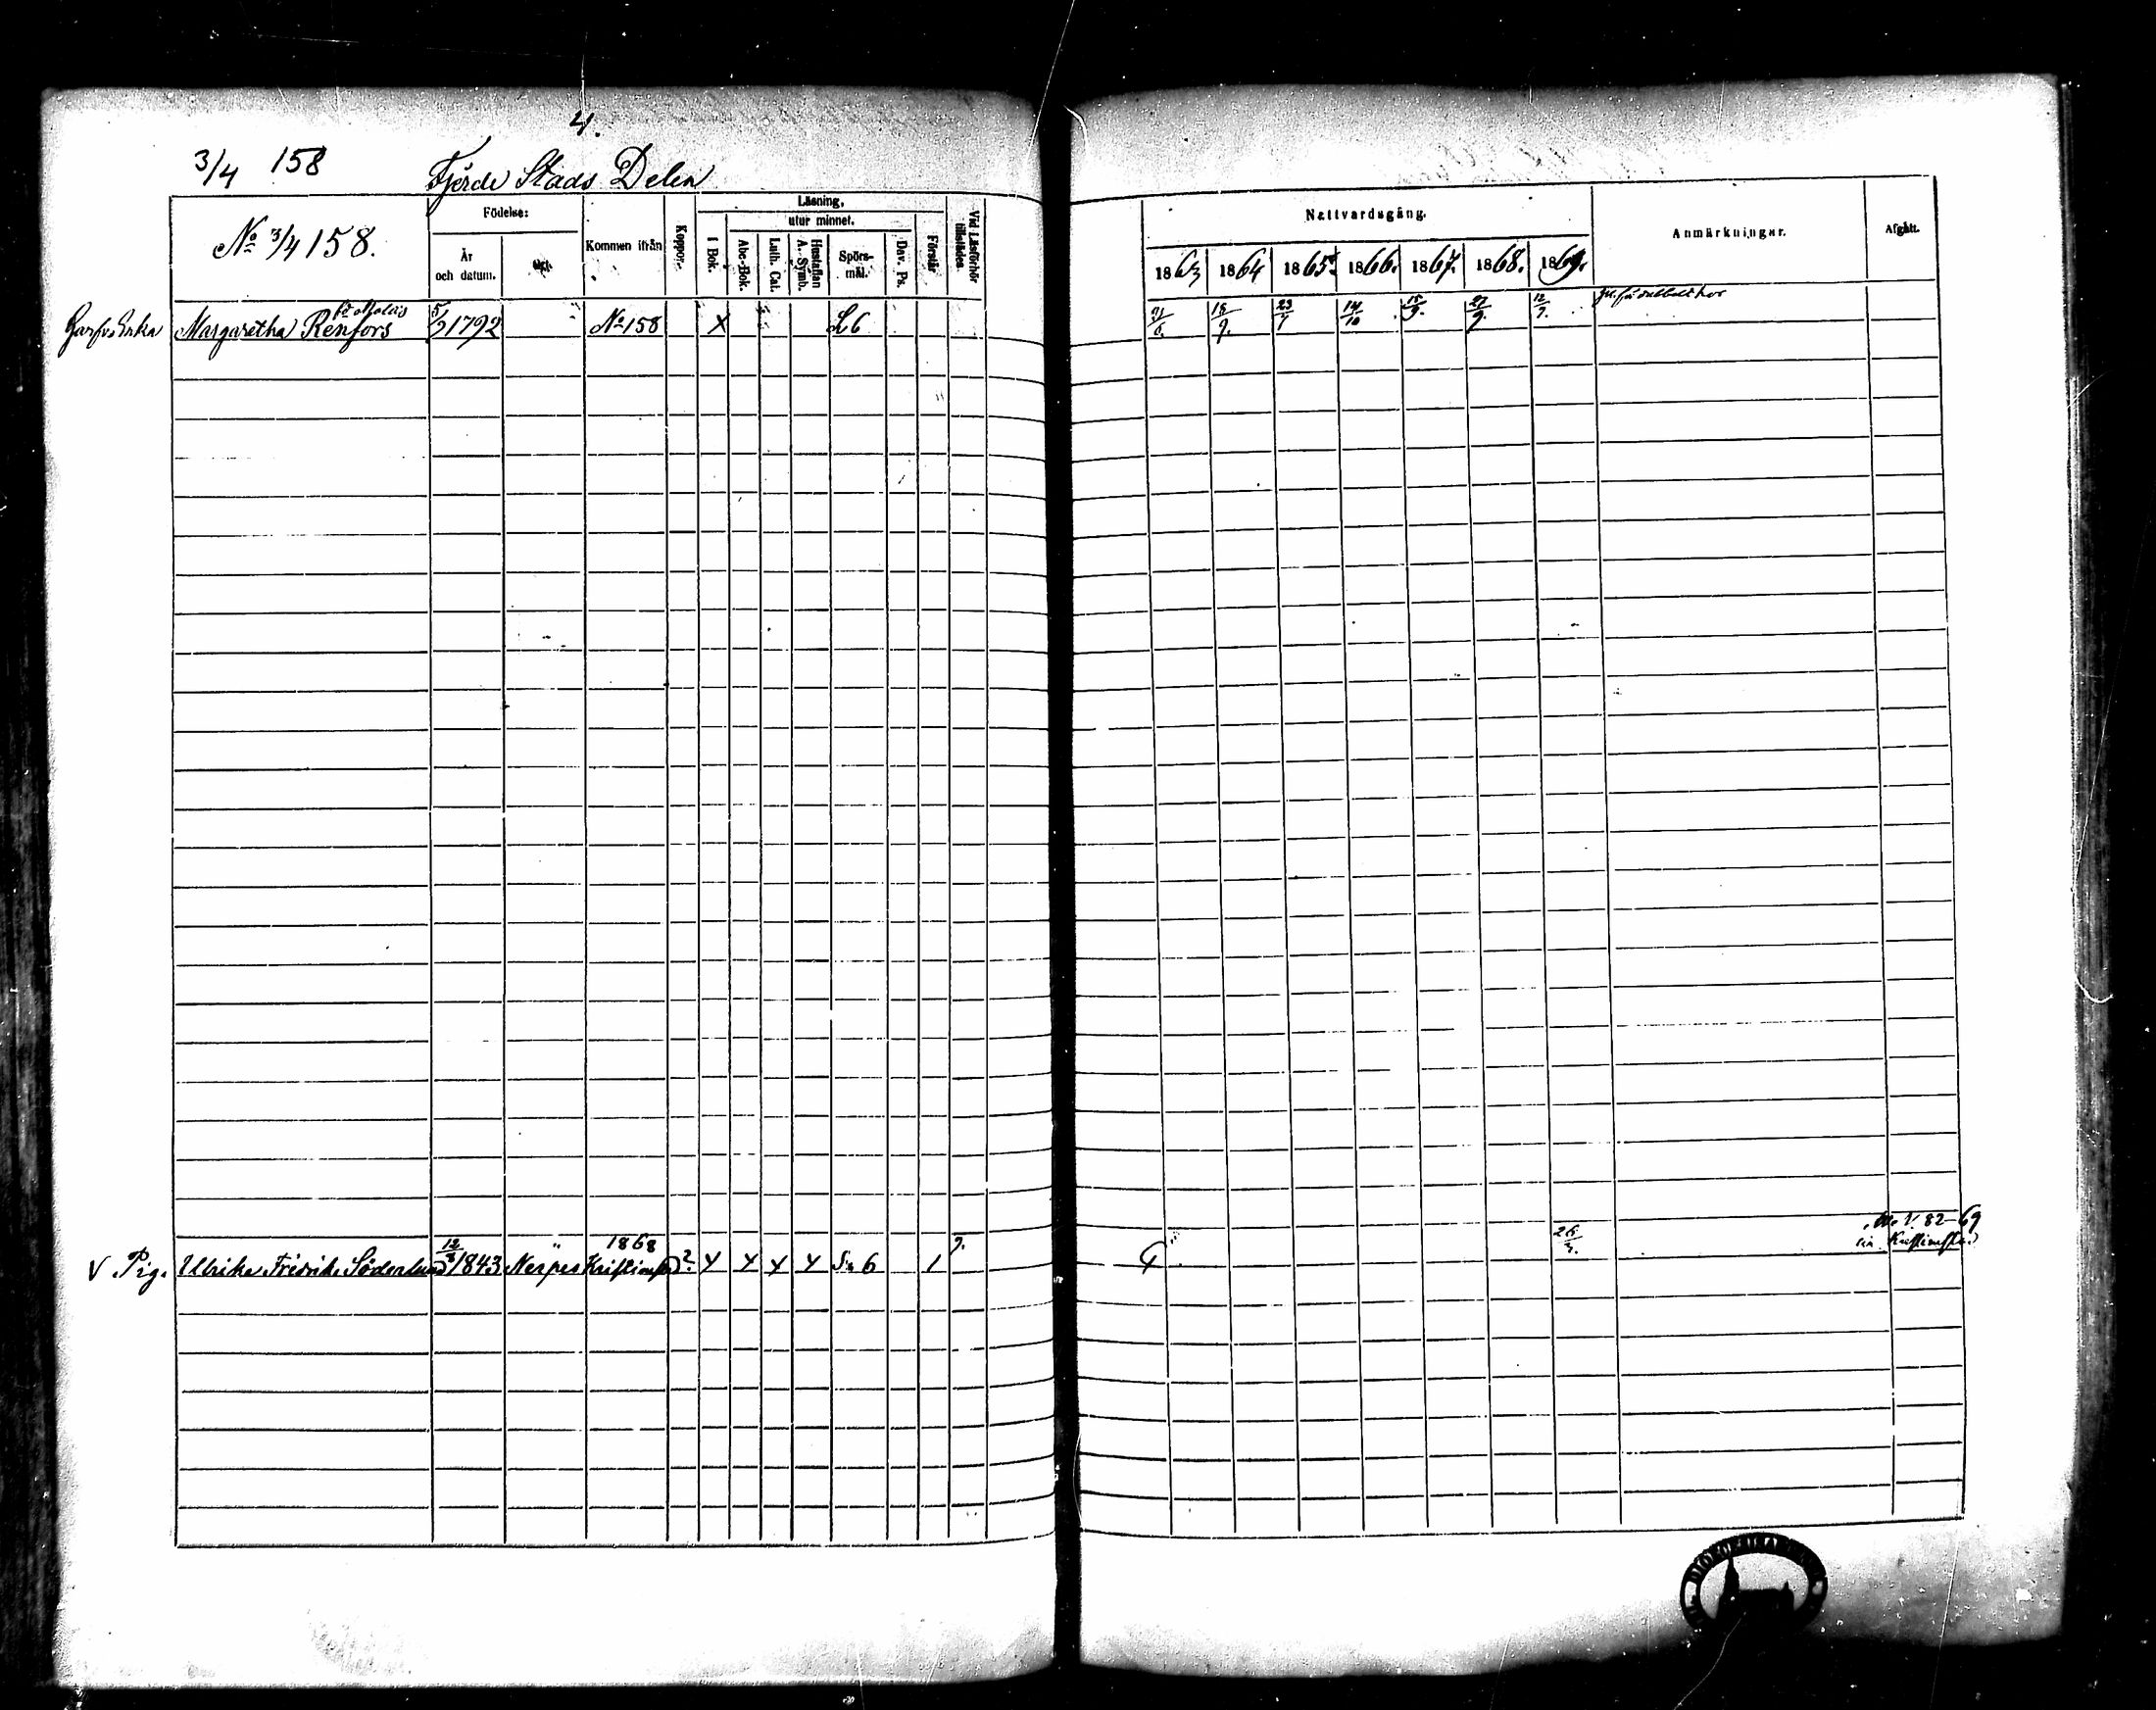 4.
3/4 158 Fjerde Stads Delen
No 3/4 158.
Födelse:
År och datum.
Ort.
Kommen ifrån
Koppor.
Läsning,
I Bok.
utur minnet.
Abc-Bok.
Luth. Cat.
Hustaflan A. Symb.
Spörs-mål.
Dav. Ps.
Förstår
Vid Läsförhör tillstädes
Nattvardsgång.
1863 1864 1865. 1866. 1867. 1868. 1869.
Anmärkningar.
Afgått.
Margaretha Renfors 5/2 1792 No 158 X L 6 21/6. 18/9. 23/7 14/10 15/9. 27/9. 12/7.
V. Pig. Ulrika Fredrika Söderlund 12/3 1843 Nerpes 1868 Kristinestad ? X X X X 6 1 26/3. 82-69